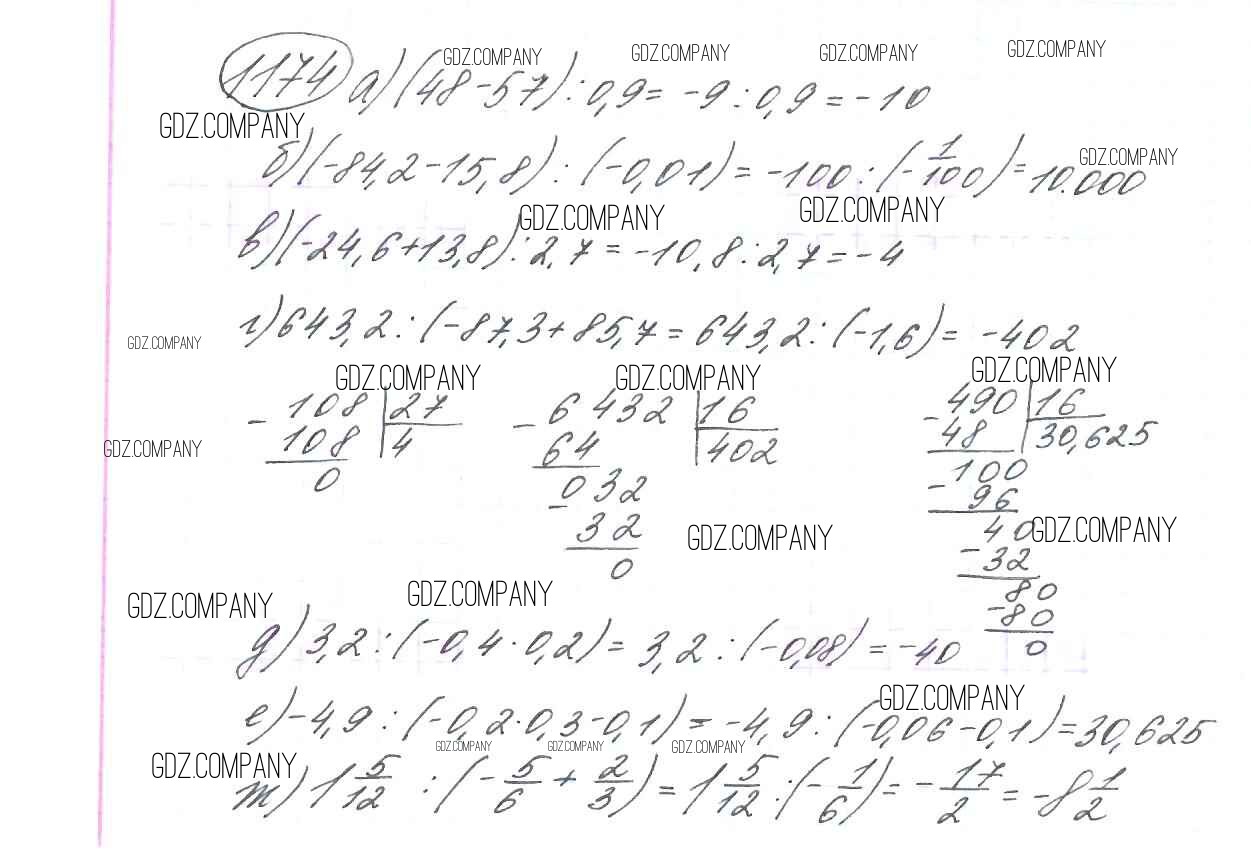 1174 а) (48-57) : 0,9 = -9 : 0,9 = -10
GDZ.COMPANY GDZ.COMPANY GDZ.COMPANY GDZ.COMPANY
GDZ.COMPANY
б) (-84,2-15,8) : (-0,01) = -100 : (-1/100) = 10.000
GDZ.COMPANY
GDZ.COMPANY GDZ.COMPANY
в) (-24,6+13,8) : 2,7 = -10,8 : 2,7 = -4
г) 643,2 : (-87,3+85,7 = 643,2 : (-1,6) = -402
GDZ.COMPANY
GDZ.COMPANY GDZ.COMPANY GDZ.COMPANY
- 108 | 27
108 | 4
0
- 6432 | 16
64 | 402
- 032
32
0
- 490 | 16
48 | 30,625
- 100
96
40
- 32
80
- 80
0
GDZ.COMPANY
GDZ.COMPANY GDZ.COMPANY
GDZ.COMPANY GDZ.COMPANY
д) 3,2 : (-0,4 · 0,2) = 3,2 : (-0,08) = -40
GDZ.COMPANY
е) -4,9 : (-0,2·0,3-0,1) = -4,9 : (-0,06-0,1) = 30,625
GDZ.COMPANY GDZ.COMPANY GDZ.COMPANY
GDZ.COMPANY
ж) 1 5/12 : (-5/6 + 2/3) = 1 5/12 : (-1/6) = -17/2 = -8 1/2